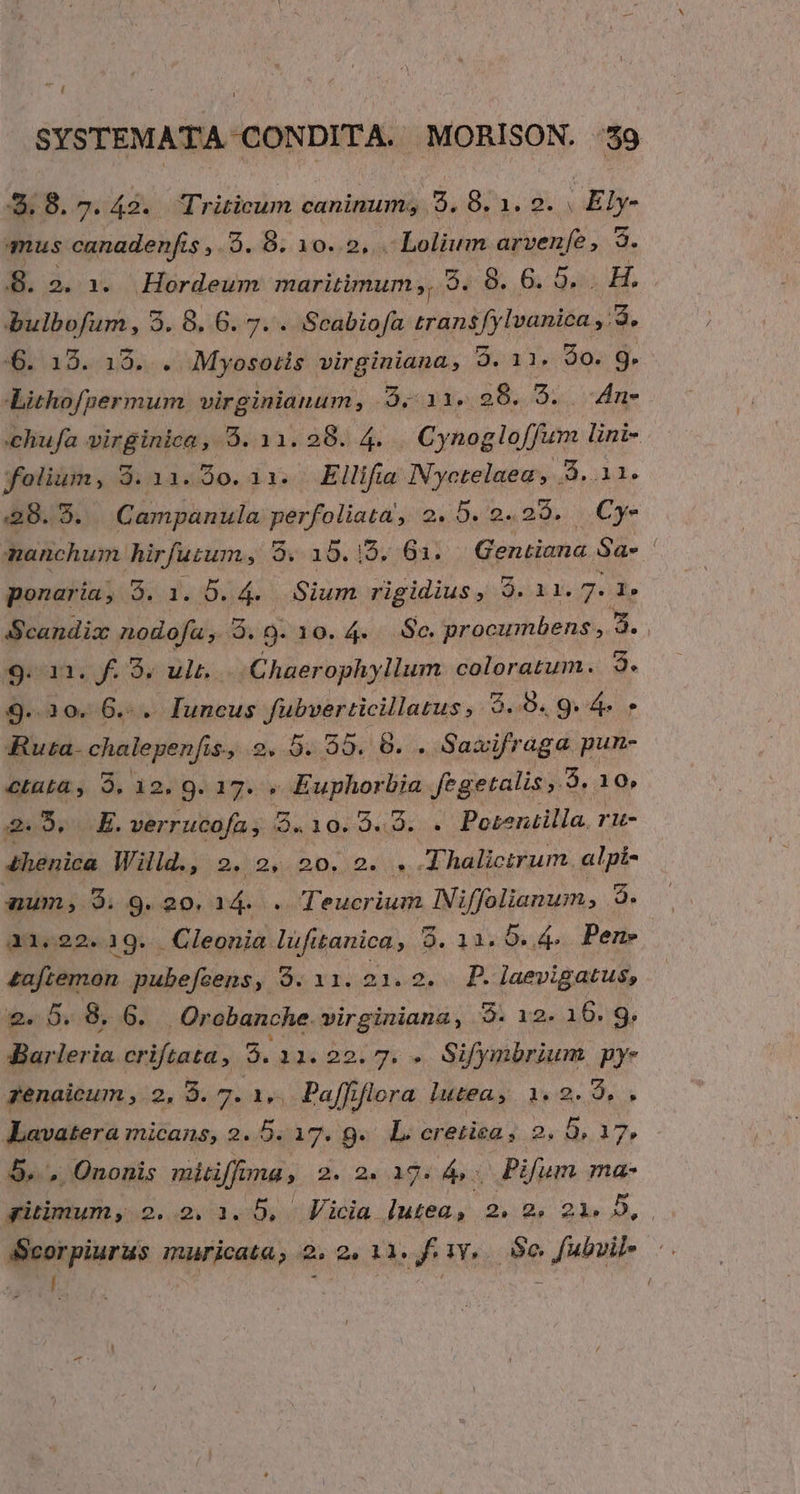 SYSTEMATA CONDITA. MORISON. 39
3. 8. 7. 42. Triticum caninum, 3. 8. 1. 2. . Ely-
mus canadenſis, 3. 8. 10. 2. . Lolium arvenſe, 3.
8. 2. 1. Hordeum maritimum, 3. 8. 6. 5. . H.
bulboſum, 3. 8. 6. 7. . Scabioſa transſylvanica, 3.
6. 13. 13. . Myosotis virginiana, 3. 11. 30. 9.
Lithoſpermum virginianum, 3. 11. 28. 3. An-
chuſa virginica, 3. 11. 28. 4. Cynogloſſum lini-
folium, 3. 11. 30. 11. Elliſia Nyctelaea, 3. 11.
28. 3. Campanula perfoliata, 2. 5. 2. 23. Cy-
nanchum hirſutum, 3. 15. 3. 61. Gentiana Sa-
ponaria, 3. 1. 5. 4. Sium rigidius, 3. 11. 7. 1.
Scandix nodoſa, 3. 9. 10. 4. Sc. procumbens, 3.
9. 11. f. 3. ult. . Chaerophyllum coloratum. 3.
9. 10. 6. . Iuncus ſubverticillatus, 3. 8. 9. 4. .
Ruta chalepenſis, 2. 5. 35. 8. . Saxifraga pun-
ctata, 3. 12. 9. 17. . Euphorbia ſegetalis, 3. 10.
2. 3. E. verrucoſa, 3. 10. 3. 3. . Potentilla ru-
thenica Willd., 2. 2. 20. 2. . Thalictrum alpi-
num, 3. 9. 20. 14. . Teucrium Niſſolianum, 3.
11. 22. 19. Cleonia luſitanica, 3. 11. 5. 4. Pen-
taſtemon pubeſcens, 3. 11. 21. 2. P. laevigatus,
2. 5. 8. 6. Orobanche virginiana, 3. 12. 16. 9.
Barleria criſtata, 3. 11. 22. 7. . Siſymbrium py-
renaicum, 2. 3. 7. 1. Paſſiflora lutea, 1. 2. 3. .
Lavatera micans, 2. 5. 17. 9. L. cretica, 2. 5. 17.
5. . Ononis mitiſſima, 2. 2. 17. 4. . Piſum ma-
ritimum, 2. 2. 1. 5. Vicia lutea, 2. 2. 21. 5.
Scorpiurus muricata, 2. 2. 11. f. 1v. Sc. ſubvil-